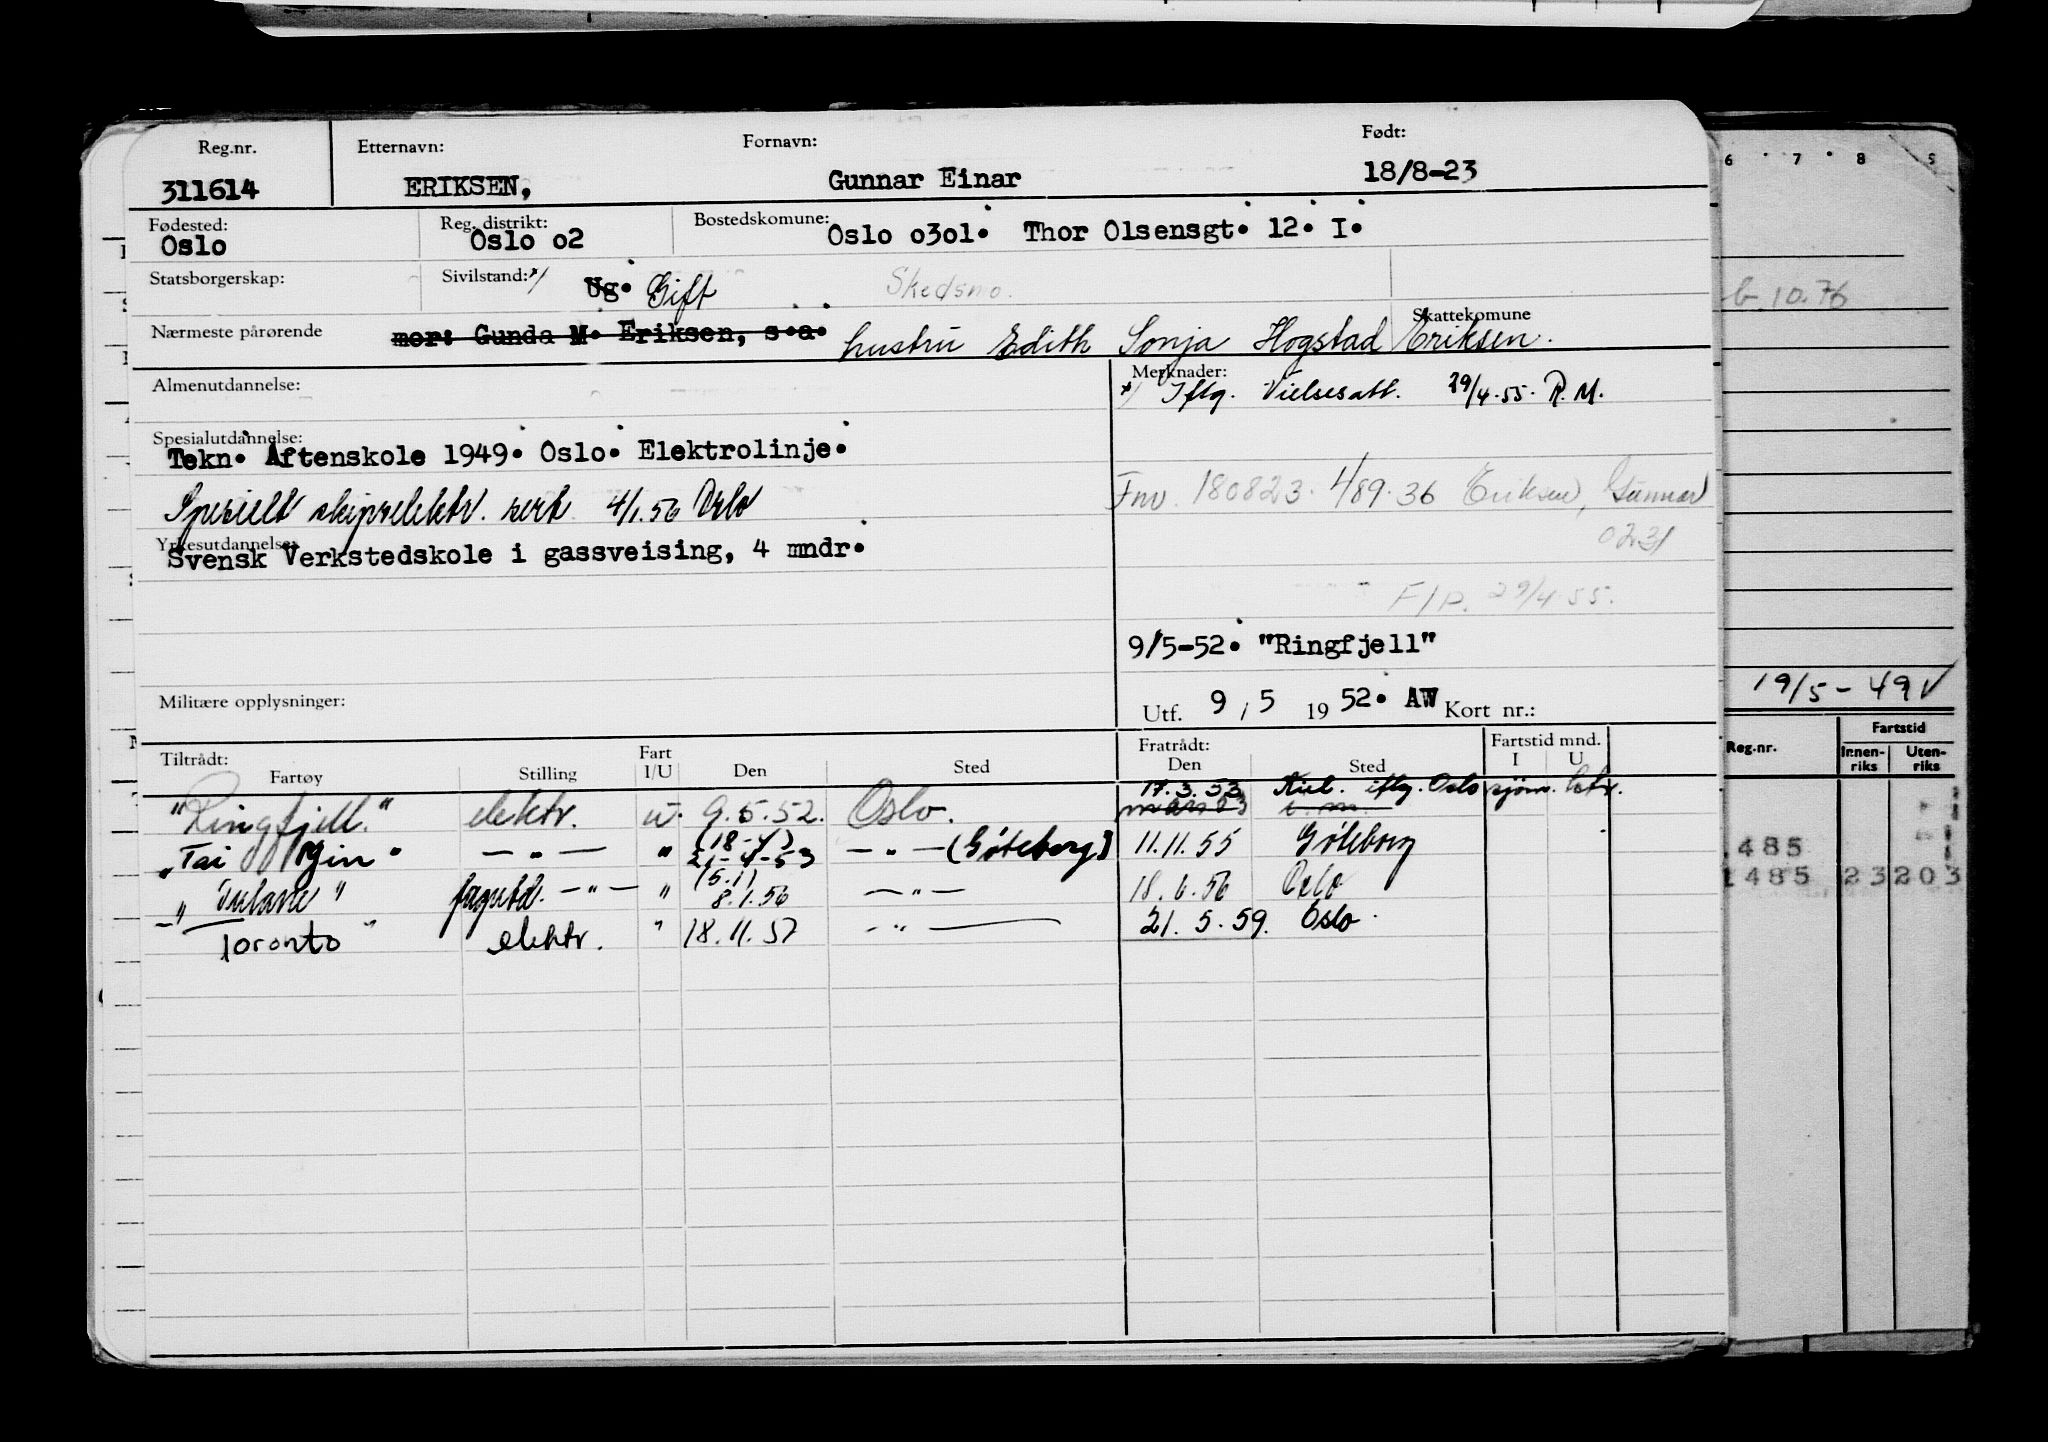 Reg.nr. Etternavn: Fornavn: Født:
311614 ERIKSEN, Gunnar Einar 18/8-23
Fødested: Reg. distrikt: Bostedskomune:
Oslo Oslo o2 Oslo o3o1. Thor Olsensgt. 12. I.
Statsborgerskap: Sivilstand: x/ Ug. Gift Skedsmo.
Nærmeste pårørende mor: Gunda M. Eriksen, s.a. hustru Edith Sonja Hogstad Eriksen.
Skattekomune
Almenutdannelse: Merknader:
x/ Iflg. Vielsesatt. 29/4.55. R.M.
Spesialutdannelse:
Tekn. Aftenskole 1949. Oslo. Elektrolinje.
Fnr. 180823. 489.36 Eriksen, Gunnar
Spesiell skipselektr. sert 4/1.56 Oslo
0231
Yrkesutdannelse:
Svensk Verkstedskole i gassveising, 4 mndr.
F/P. 29/4.55.
9/5-52. "Ringfjell"
Militære opplysninger:
Utf. 9 / 5 19 52. AW Kort nr.:
Tiltrådt: Fart Fratrådt: Fartstid mnd.
Fartøy Stilling I/U Den Sted Den Sted I U
17.3.53 Kiel. iflg. Oslo sjøm. ktr.
"Ringfjell." elektr. u. 9.5.52. Oslo.
(18-4)
"Tai Yin" — " — " 21-4-53 — " — (Gøteborg) 11.11.55 Gøteborg
(5.1)
" Tulane " fagutd. — " — " 8.1.56 — " — 18.6.56 Oslo
— " Toronto " elektr. " 18.11.57 — " — 21.5.59. Oslo.
6 . 7 . 8
10.76
19/5-49 V
Reg.nr. Fartstid
Innen-riks Uten-riks
485
1485 23 203